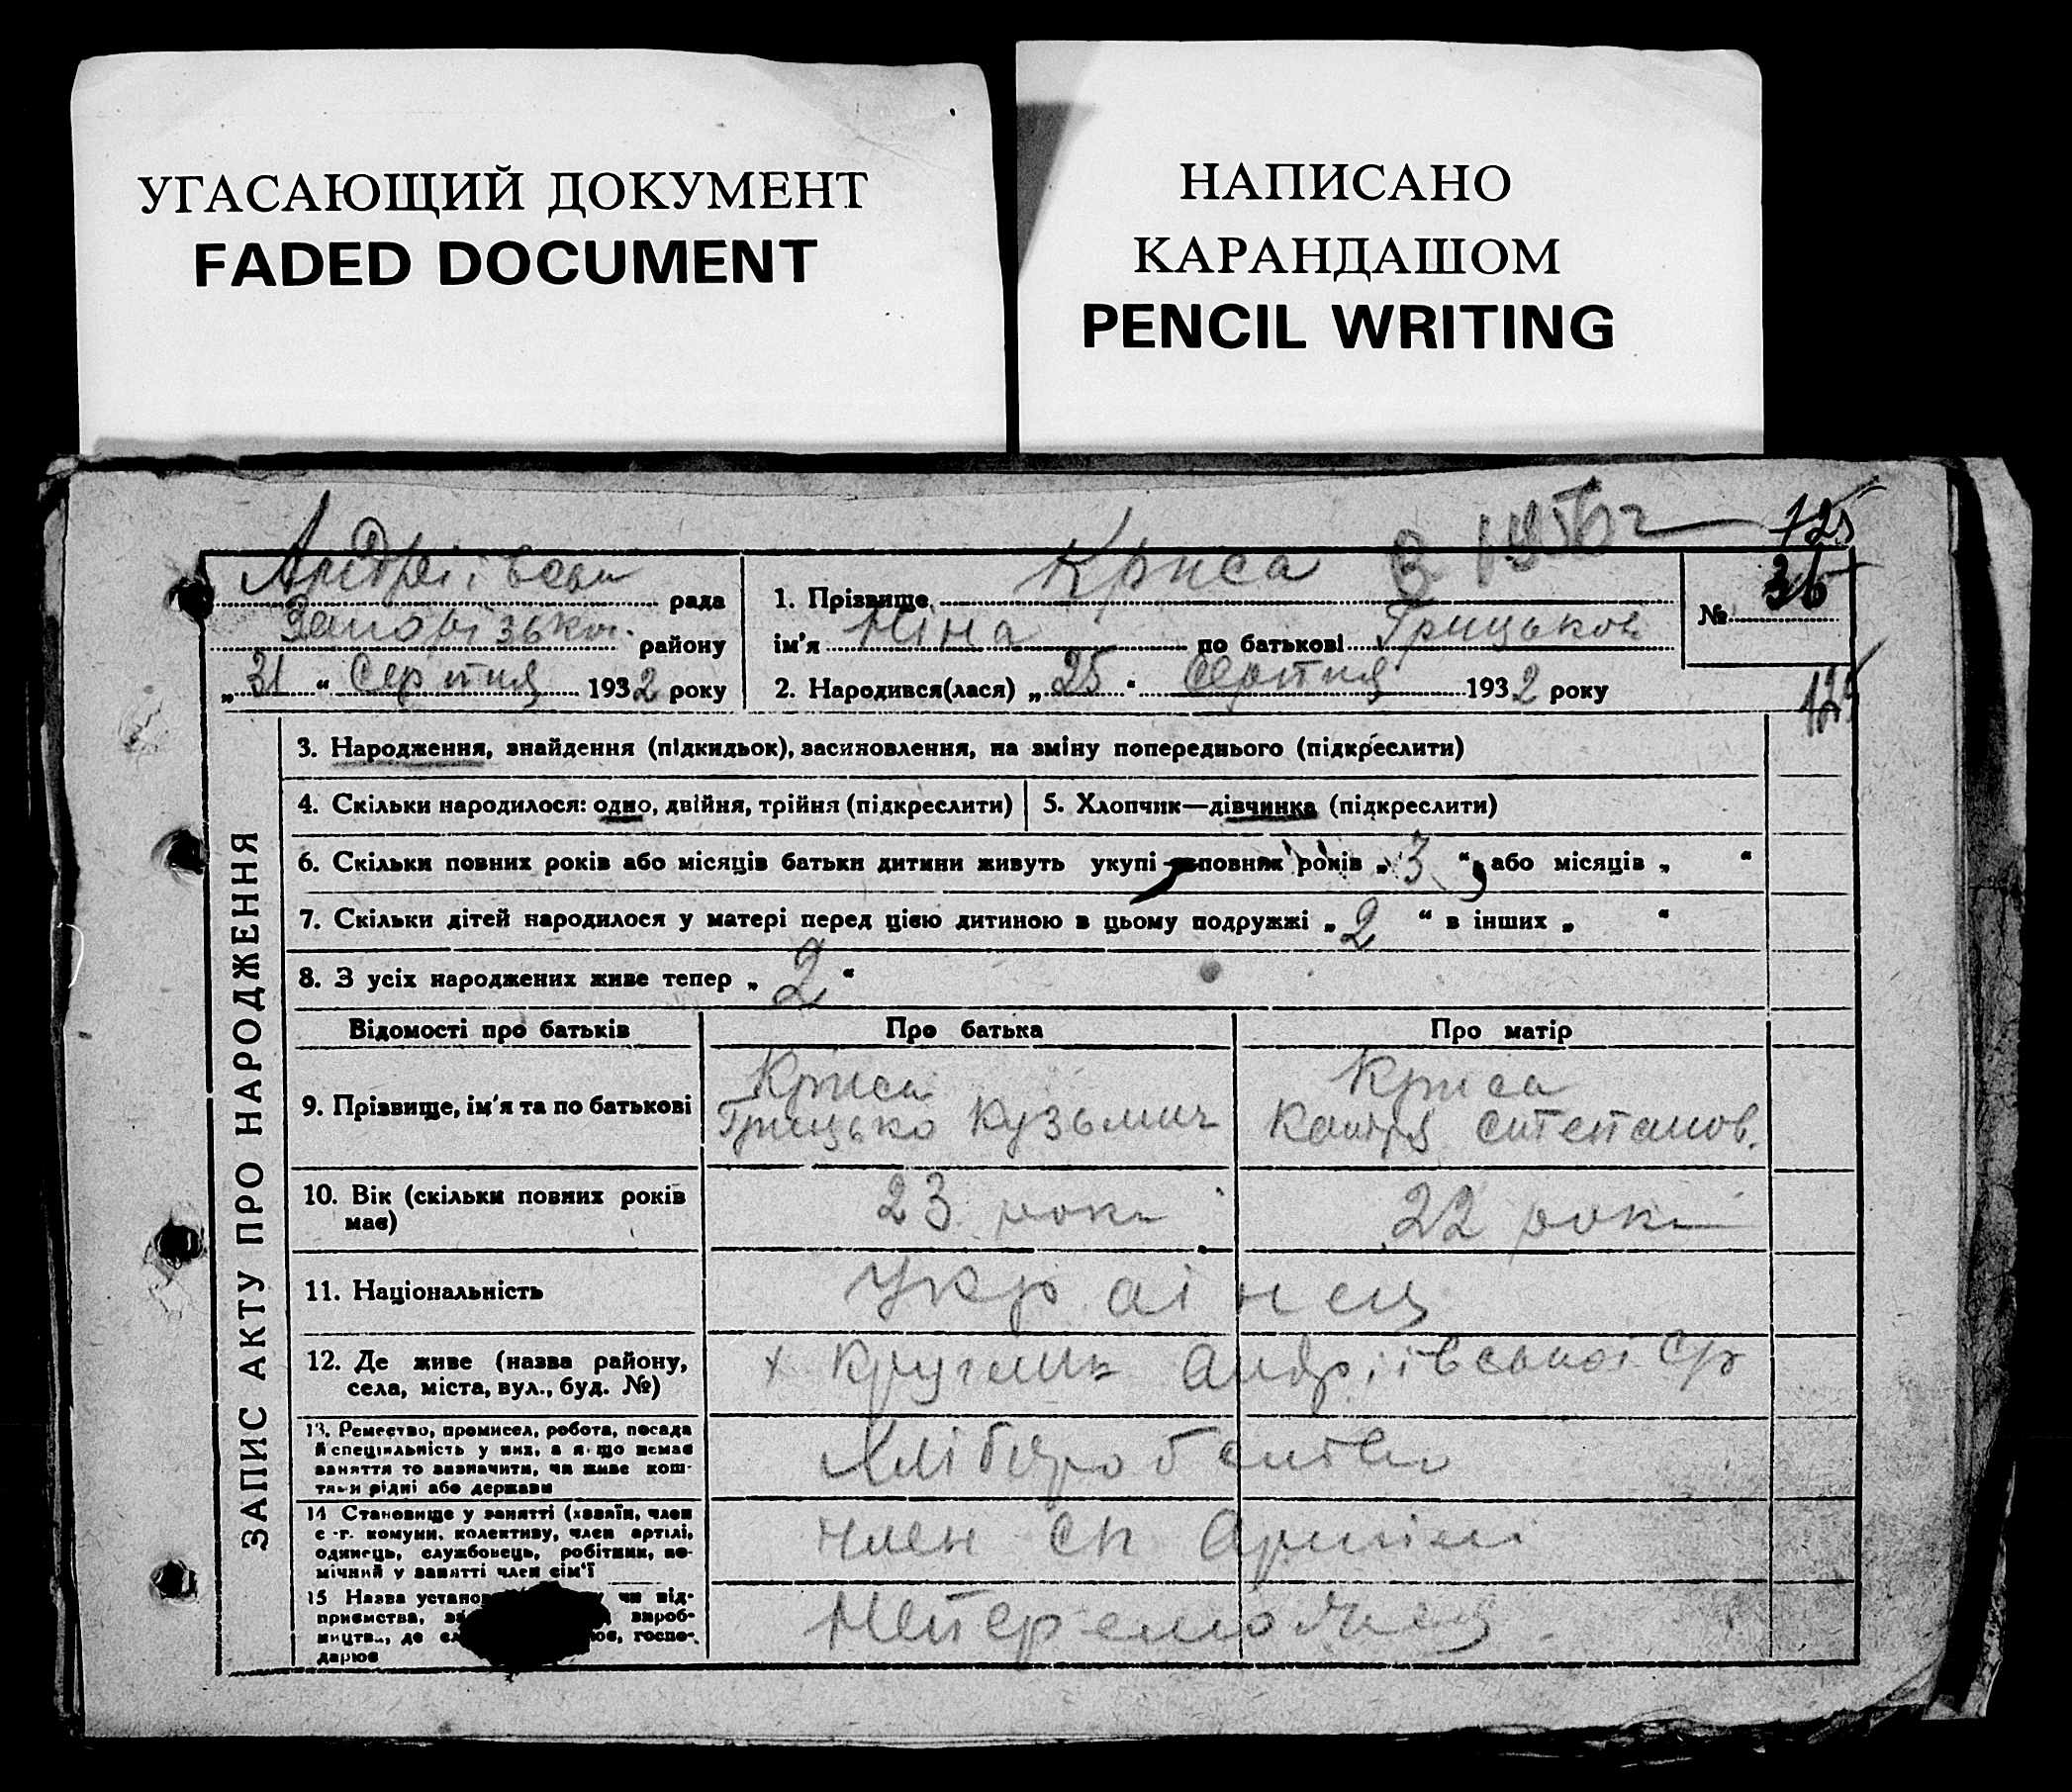 УГАСАЮЩИЙ ДОКУМЕНТ
FADED DOCUMENT
НАПИСАНО
КАРАНДАШОМ
PENCIL WRITING
125
рада
району
„ 31 “ Серпня 1932 року
1. Прізвище Криса
ім'я Ніна по батькові Грицьков
2. Народився(лася) „ 25 “ Серпня 1932 року
№ 36
125
ЗАПИС АКТУ ПРО НАРОДЖЕННЯ
3. Народження, знайдення (підкидьок), засиновлення, на зміну попереднього (підкреслити)
4. Скільки народилося: одно, двійня, трійня (підкреслити)
5. Хлопчик—дівчинка (підкреслити)
6. Скільки повних років або місяців батьки дитини живуть укупі повних років „ 3 “, або місяців „ “
7. Скільки дітей народилося у матері перед цією дитиною в цьому подружжі „ 2 “ в інших „ “
8. З усіх народжених живе тепер „ 2 “
Відомості про батьків
Про батька
Про матір
9. Прізвище, ім'я та по батькові
Криса
Грицько Кузьмич
Криса
Степанов.
10. Вік (скільки повних років
має)
23 роки
22 роки
11. Національність
Українец
12. Де живе (назва району,
села, міста, вул., буд. №)
х Кругляк Андріївської Ср
13. Ремество, промисел, робота, посада
й спеціяльність у них, а якщо немає
заняття то зазначити, чи живе кош-
тами рідні або держави
14 Становище у занятті (хазяїн, член
с.-г. комуни, колективу, член артілі,
одинець, службовець, робітник, по-
мічний у занятті член сім'ї
член сп Артілі
15 Назва установ чи від-
приємства, вироб-
ництва, де госпо-
дарює